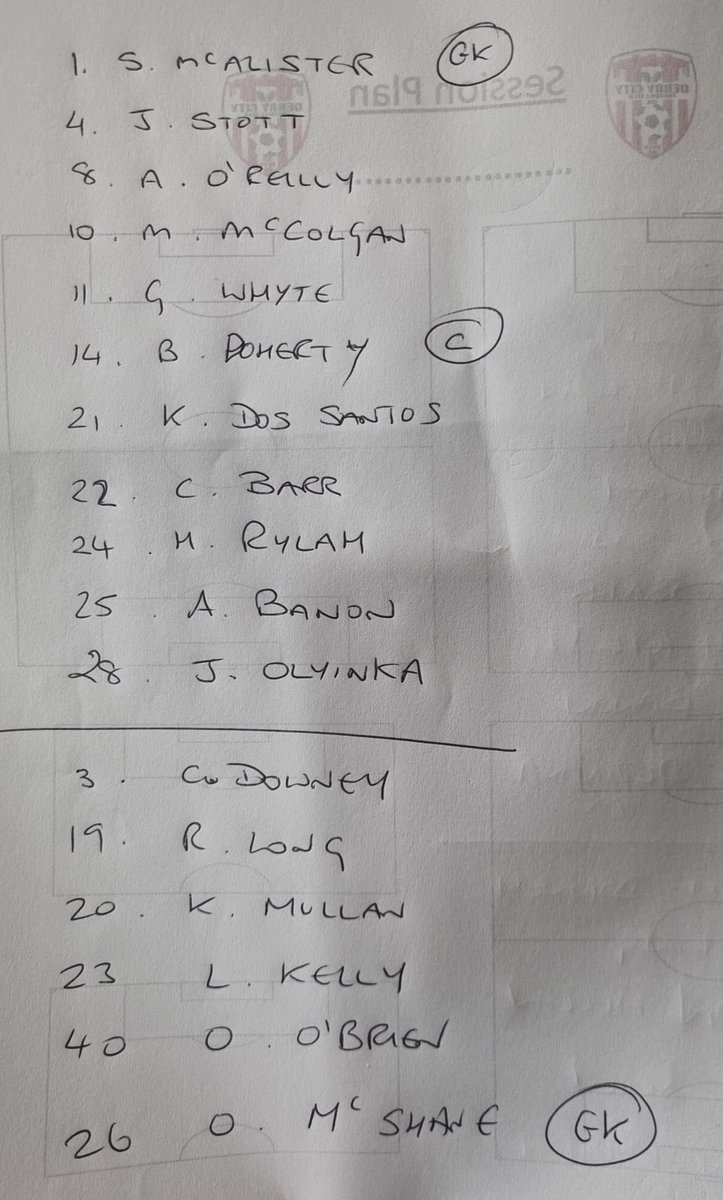 1. S. McALISTER GK
Session Plan
4. J. STOTT
8. A. O'REILLY
10. M. McCOLGAN
11. G. WHYTE
14. B. DOHERTY C
21. K. DOS SANTOS
22. C. BARR
24. H. RYLAH
25. A. BANON
28. J. OLYINKA
3. Co DOWNEY
19. R. LONG
20. K. MULLAN
23 L. KELLY
40 O. O'BRIEN
26 O. McSHANE GK